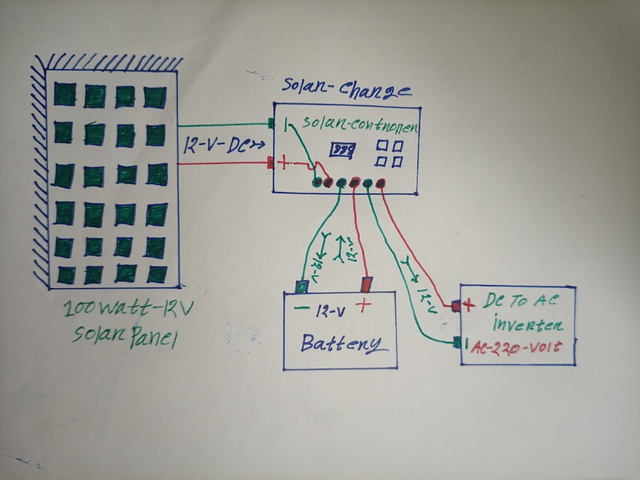 Solar-Change
Solar-controller
12-V-DC
888
100watt-12V
Solar Panel
12-V
12-V
- 12-V +
Battery
12-V
+ DC To AC
inverter
AC-220-Volt